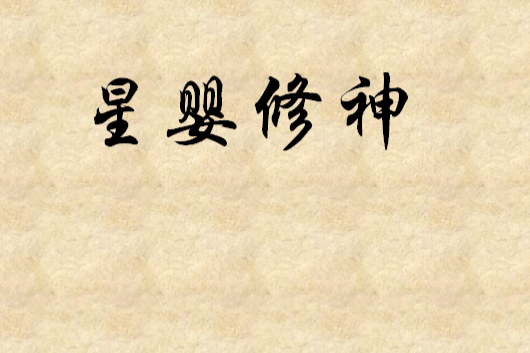 星婴修神